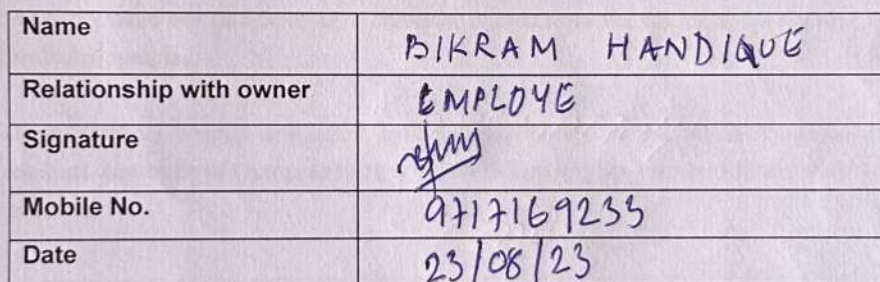 Name BIKRAM HANDIQUE
Relationship with owner EMPLOYE
Signature
Mobile No. 9717169233
Date 23/08/23